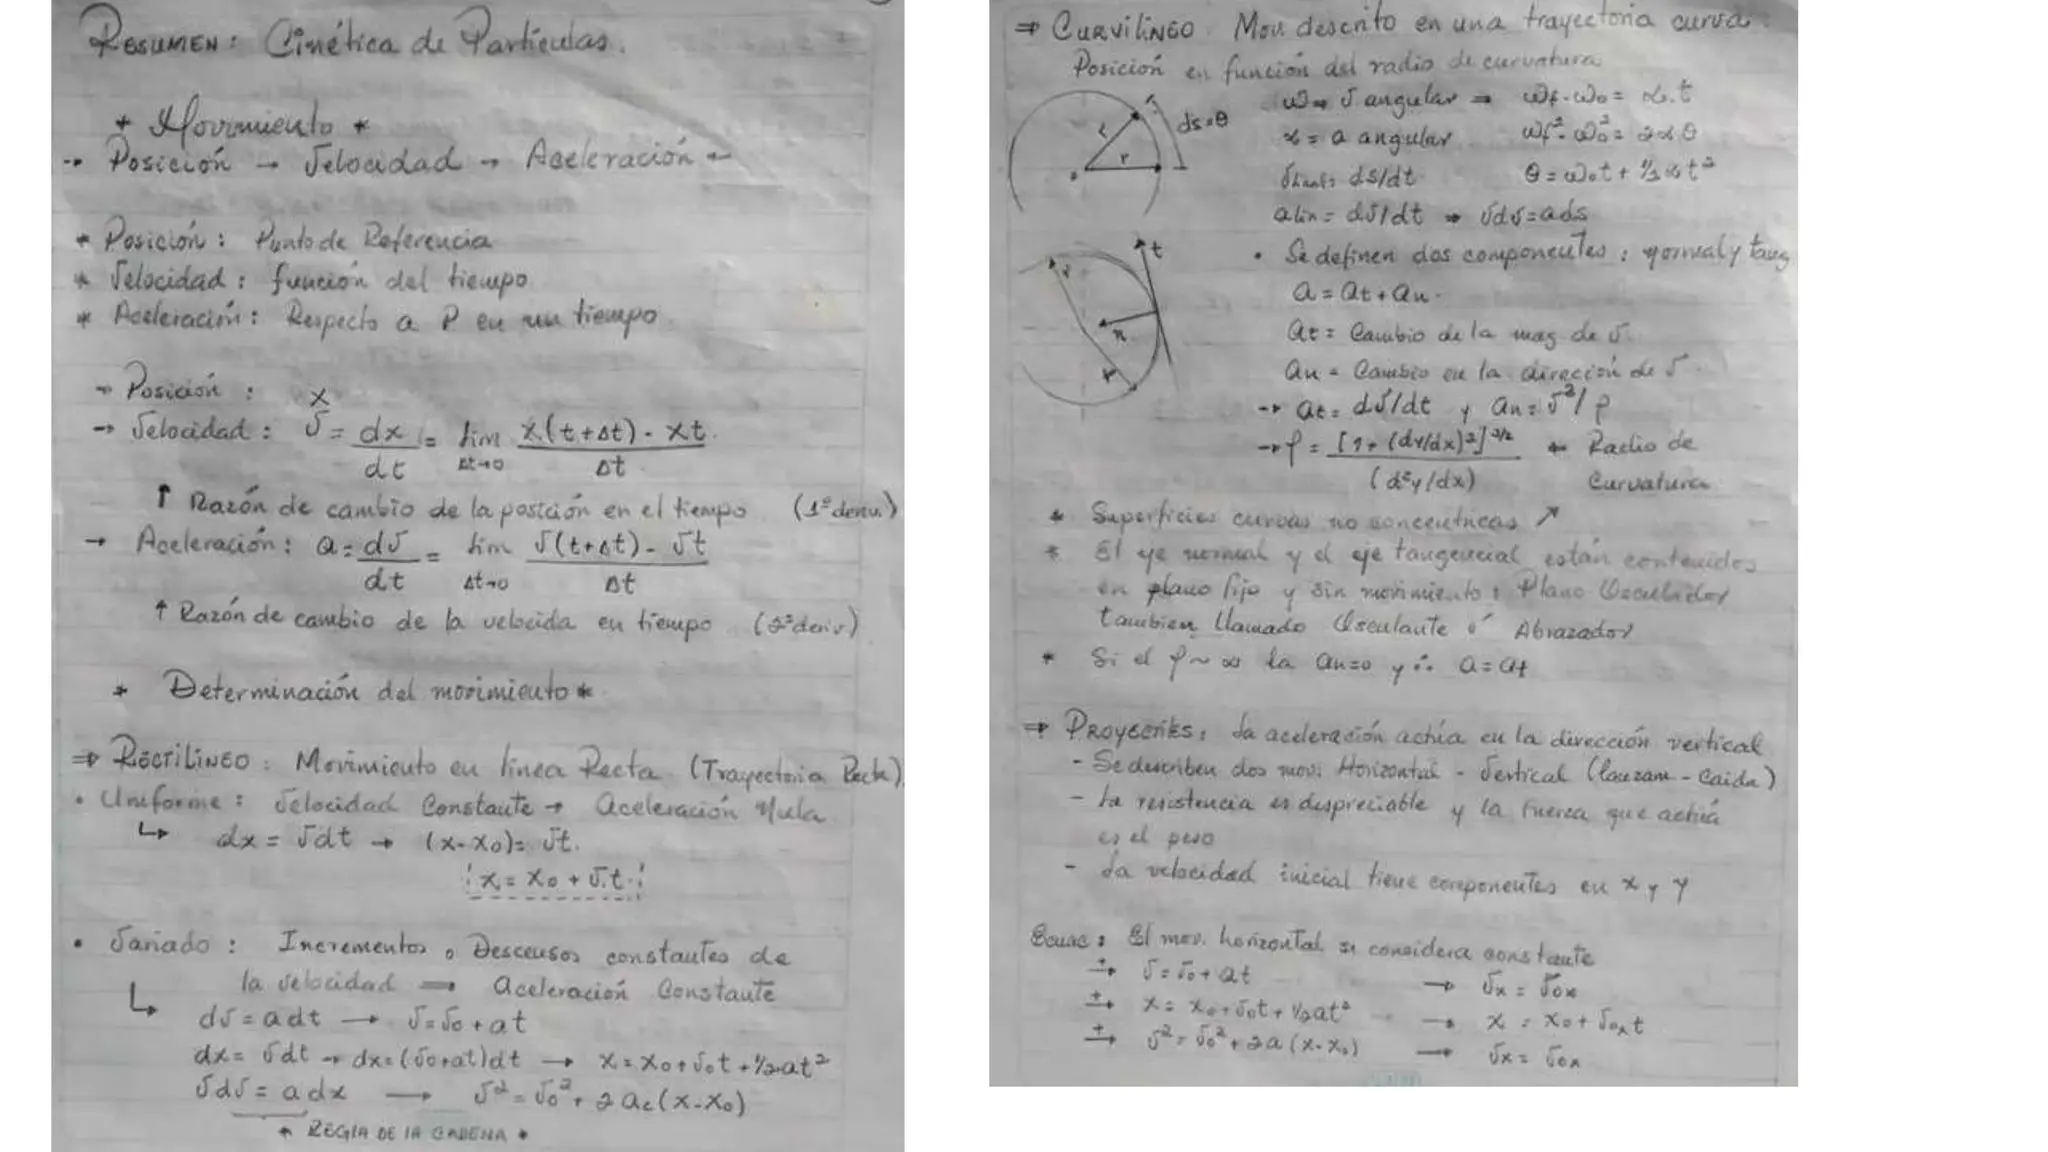 RESUMEN: Cinética de Partículas.
* Movimiento *
→ Posición → Velocidad → Aceleración ←
* Posición: Punto de Referencia
* Velocidad: función del tiempo
* Aceleración: Respecto a P en un tiempo.
→ Posición: x
→ Velocidad: v = dx/dt = lim Δt→0 x(t+Δt) - xt / Δt
↑ Razón de cambio de la posición en el tiempo (1º deriv.)
→ Aceleración: a = dv/dt = lim Δt→0 v(t+Δt) - vt / Δt
↑ Razón de cambio de la velocida en tiempo (2º deriv)
* Determinación del movimiento *
⇒ RECTILINEO: Movimiento en línea Recta (Trayectoria Recta).
• Uniforme: Velocidad Constante → Aceleración Nula
↳ dx = vdt → (x-x0) = vt.
x = x0 + v.t
• Variado: Incrementos o Descensos constantes de
la velocidad ⇒ Aceleración Constante
↳ dv = adt → v = v0 + at
dx = vdt → dx = (v0+at)dt → x = x0 + v0t + 1/2at²
vdv = adx → v² = v0² + 2ac(x-x0)
* REGLA DE LA CADENA *
⇒ CURVILINEO. Mov. descrito en una trayectoria curva.
Posición en función del radio de curvatura
ds=θ
r
r
o
ω → v angular ⇒ ωf-ω0 = α.t
α = a angular ωf²-ω0² = 2αθ
ds/dt θ = ω0t + 1/2αt²
alin = dv/dt → vdv = ads
t
n
r
r
• Se definen dos componentes: normal y tang
a = at + an.
at = Cambio de la mag de v.
an = Cambio en la direción de v.
→ at = dv/dt y an = v²/ρ
→ ρ = [1+(dy/dx)²]^3/2 / (d²y/dx) ← Radio de Curvatura
* Superficies curvas no concentricas ↗
* El eje normal y el eje tangencial están contenidos
en plano fijo y sin movimiento: Plano Osculador
tambien llamado Osculante ó Abrazador
* Si el ρ ~ ∞ la an=0 y ∴ a = at
⇒ PROYECTILES: La aceleración actúa en la dirección vertical
- Se describen dos mov. Horizontal - Vertical (lanzam - Caida)
- La resistencia es despreciable y la Fuerza que actúa
es el peso
- La velocidad inicial tiene componentes en x y y
Ecuac: El mov. horizontal se considera constante
+→ v = v0 + at → vx = v0x
+→ x = x0 + v0t + 1/2at² → x = x0 + v0xt
+→ v² = v0² + 2a(x-x0) → vx = v0x